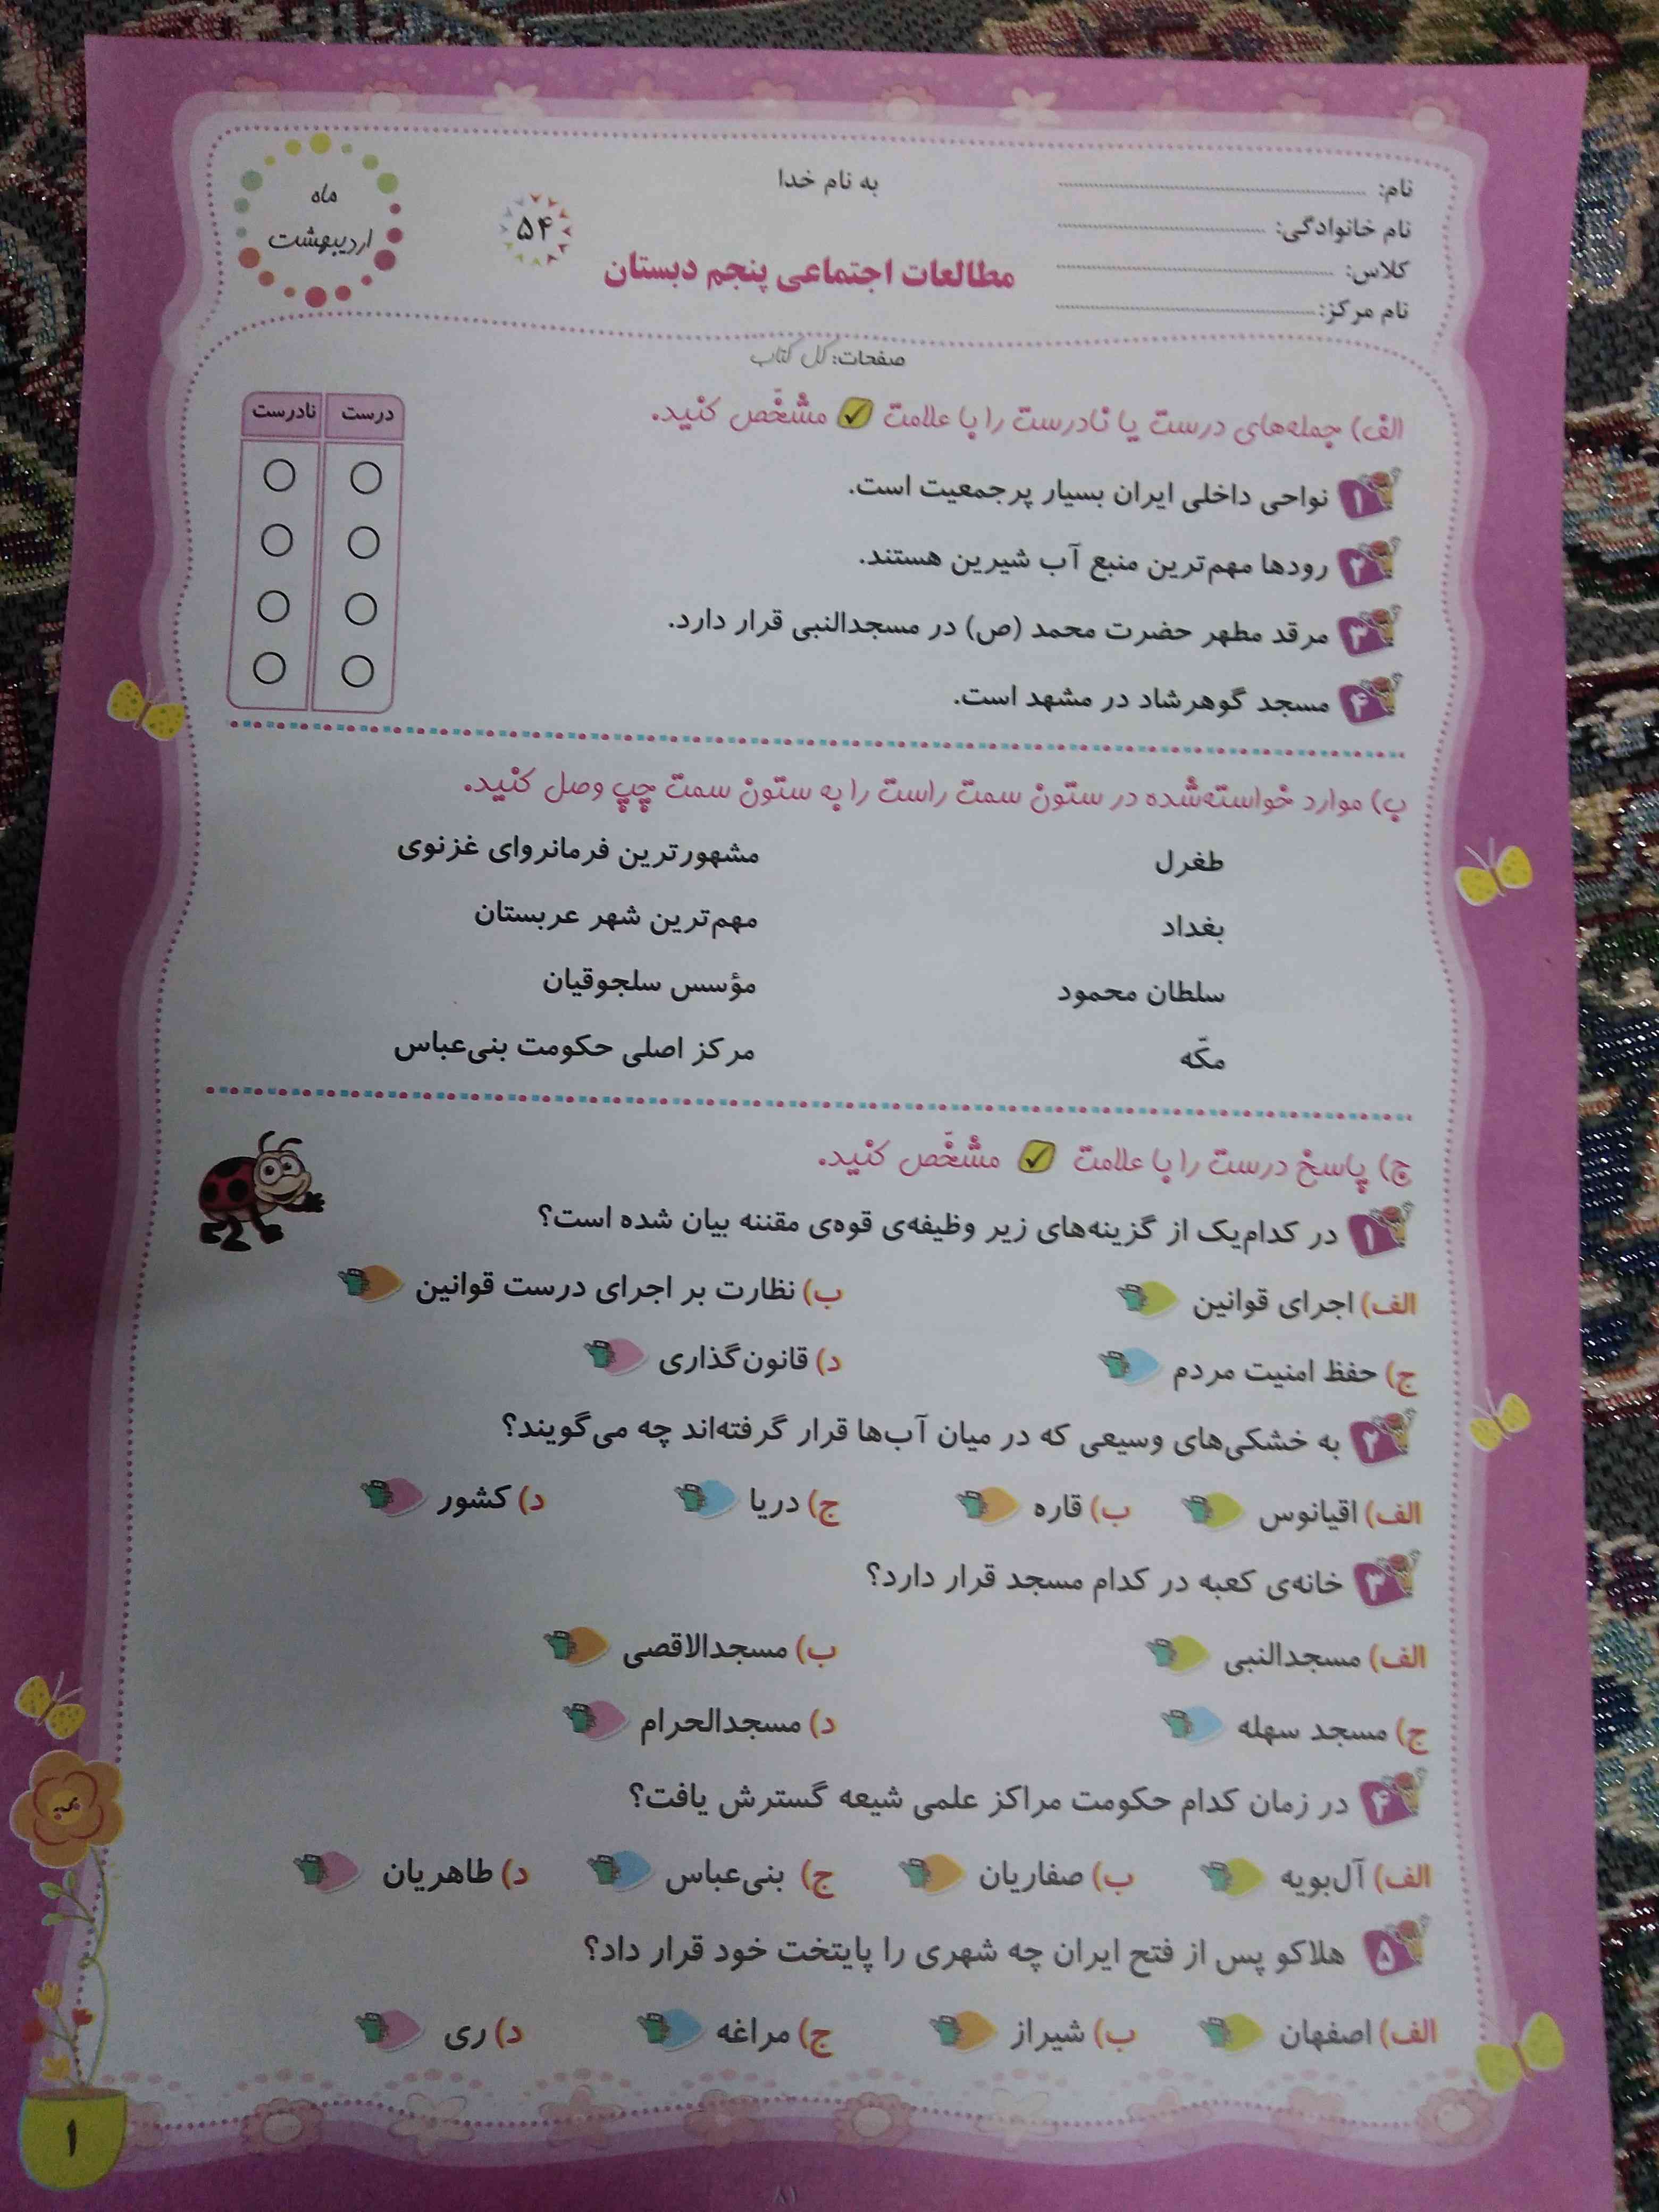 نام:
نام خانوادگی:
کلاس:
نام مرکز:
به نام خدا
مطالعات اجتماعی پنجم دبستان
۵۴
ماه
اردیبهشت
صفحات: کل کتاب
الف) جمله‌های درست یا نادرست را با علامت ✓ مشخّص کنید.
درست نادرست
۱ نواحی داخلی ایران بسیار پرجمعیت است.
۲ رودها مهم‌ترین منبع آب شیرین هستند.
۳ مرقد مطهر حضرت محمد (ص) در مسجدالنبی قرار دارد.
۴ مسجد گوهرشاد در مشهد است.
ب) موارد خواسته‌شده در ستون سمت راست را به ستون سمت چپ وصل کنید.
طغرل مشهورترین فرمانروای غزنوی
بغداد مهم‌ترین شهر عربستان
سلطان محمود مؤسس سلجوقیان
مکّه مرکز اصلی حکومت بنی‌عباس
ج) پاسخ درست را با علامت ✓ مشخّص کنید.
۱ در کدام‌یک از گزینه‌های زیر وظیفه‌ی قوه‌ی مقننه بیان شده است؟
الف) اجرای قوانین ب) نظارت بر اجرای درست قوانین
ج) حفظ امنیت مردم د) قانون‌گذاری
۲ به خشکی‌های وسیعی که در میان آب‌ها قرار گرفته‌اند چه می‌گویند؟
الف) اقیانوس ب) قاره ج) دریا د) کشور
۳ خانه‌ی کعبه در کدام مسجد قرار دارد؟
الف) مسجدالنبی ب) مسجدالاقصی
ج) مسجد سهله د) مسجدالحرام
۴ در زمان کدام حکومت مراکز علمی شیعه گسترش یافت؟
الف) آل‌بویه ب) صفاریان ج) بنی‌عباس د) طاهریان
۵ هلاکو پس از فتح ایران چه شهری را پایتخت خود قرار داد؟
الف) اصفهان ب) شیراز ج) مراغه د) ری
۱
۸۱